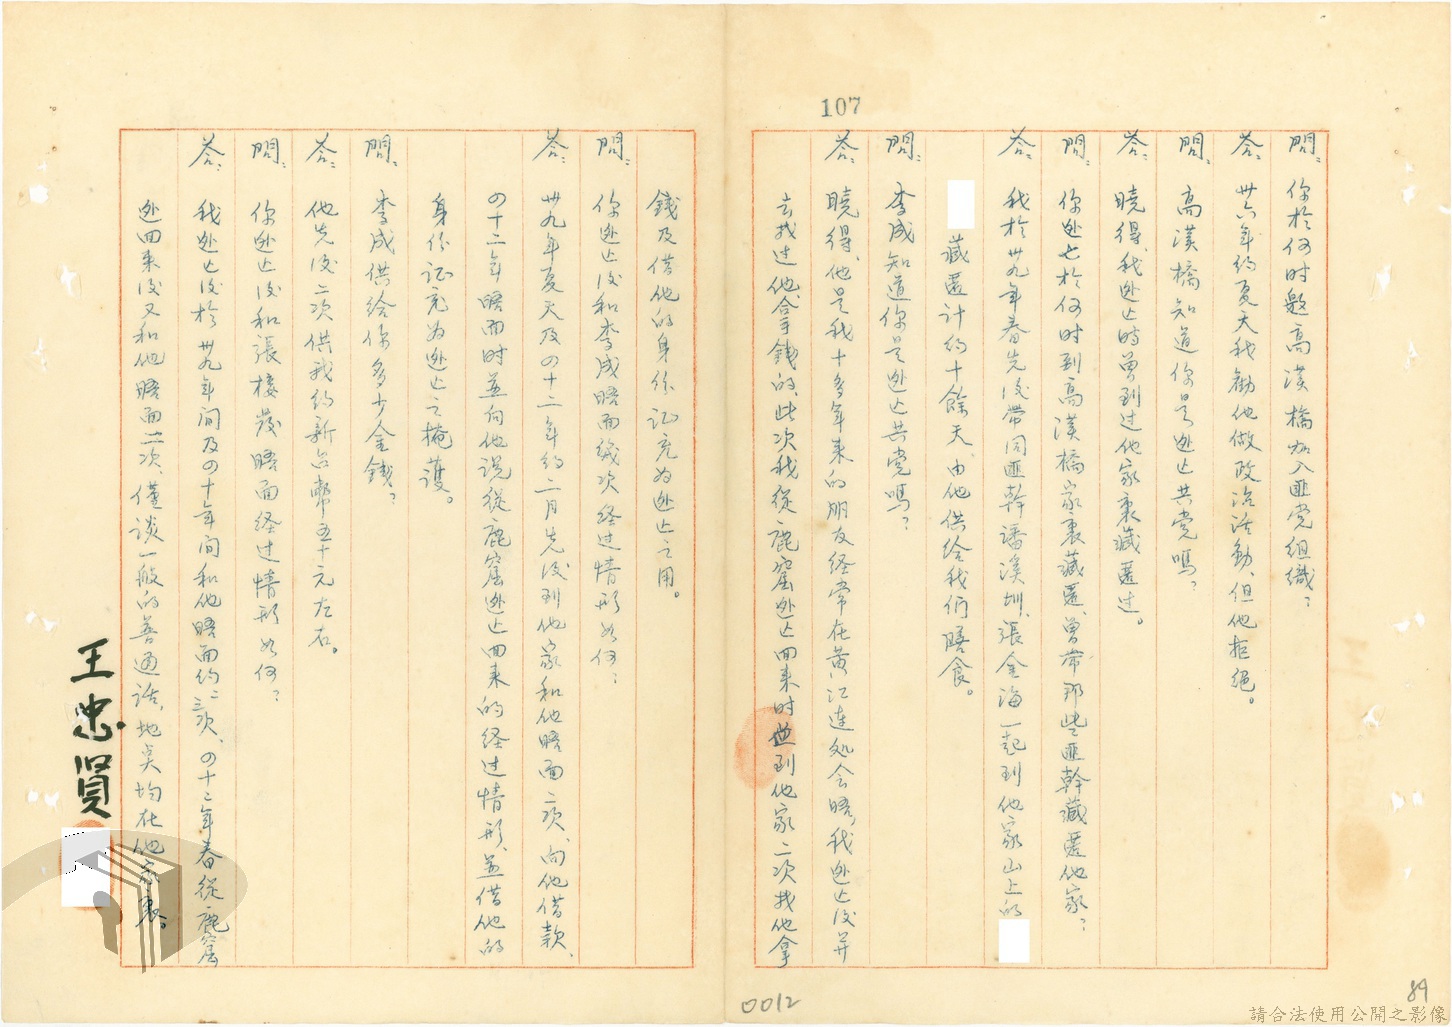 107
問：你於何时邀高漢橋加入匪党組織？
答：卅六年約夏天我勸他做政治活動，但他拒絕。
問：高漢橋知道你是逃亡共党嗎？
答：曉得，我逃亡時曾到过他家裏藏匿过。
問：你逃亡於何时到高漢橋家裏藏匿，曾帶那些匪幹藏匿他家？
答：我於卅九年春先後帶同匪幹潘溪圳、張金海一起到他家山上的
藏匿計約十餘天，由他供給我们膳食。
問：李成知道你是逃亡共党嗎？
答：曉得，他是我十多年来的朋友経常在黃江連処会晤，我逃亡後并
去找过他、拿錢的，此次我従鹿窟逃亡回来时並到他家二次找他拿
錢及借他的身份证充为逃亡之用。
問：你逃亡後和李成晤面幾次経过情形如何？
答：卅九年夏天及四十二年約二月先後到他家和他晤面二次，向他借款、
四十二年晤面时並向他说從鹿窟逃亡回来的経过情形，並借他的
身份证充为逃亡之掩護。
問：李成供給你多少金錢？
答：他先後二次供我約新台幣五十元左右。
問：你逃亡後和張棲發晤面経过情形如何？
答：我逃亡後於卅九年间及四十年间和他晤面約二三次、四十二年春從鹿窟
逃回来後又和他晤面二次，僅谈一般的普通话，地点均在他家裏。
王忠賢
0012
89
請合法使用公開之影像